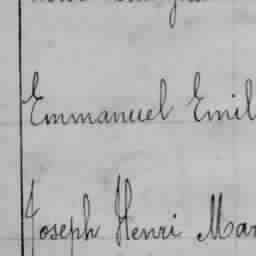 Emmanuel Emil
Joseph Henri Mar